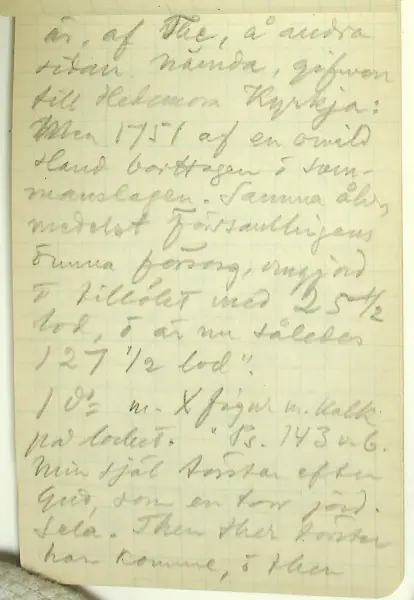 är, af The, å andra
sidan nämda, gifven
till Hedemora Kyrkja:
Men 1751 af en omild
Hand borttagen ö som-
manslagen. Samma åhr,
medelst Församblingens
ömma försorg, omgjord
ö tillökt med 25 1/2
lod, ö är nu således
127 1/2 lod".
1 do m. X figur m. kalk
på locket. "Ps. 143 v. 6.
Min själ törstar efter
Gud, som en torr jord.
Sela. Then ther törster
han komme, ö then